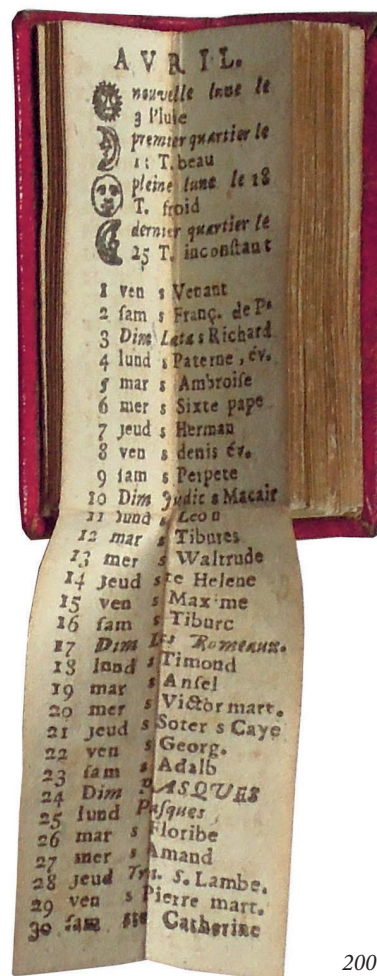 AVRIL.
nouvelle lune le
3 Pluie
premier quartier le
11 T. beau
pleine lune le 18
T. froid
dernier quartier le
25 T. inconſtant
1 ven s Venant
2 ſam s Franç. de Pᵃ
3 Dim Læta s Richard
4 lund s Paterne, év.
5 mar s Ambroiſe
6 mer s Sixte pape
7 jeud s Herman
8 ven s denis év.
9 ſam s Perpete
10 Dim Judic s Macair
11 lund s Leon
12 mar s Tibures
13 mer s Waltrude
14 jeud ste Helene
15 ven s Maxime
16 ſam s Tiburc
17 Dim Les Romeaux.
18 lund s Timond
19 mar s Anſel
20 mer s Victor mart.
21 jeud s Soter s Caye
22 ven s Georg.
23 ſam s Adalb
24 Dim PASQUES
25 lund Paſques
26 mar s Floribe
27 mer s Amand
28 jeud s. Lambe.
29 ven s Pierre mart.
30 ſam ste Catherine
200